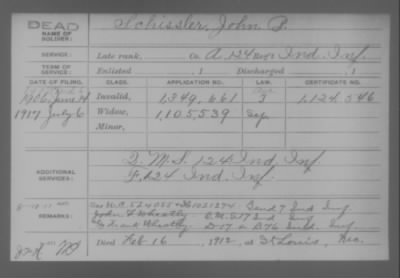 DEAD
NAME OF SOLDIER: Schissler, John P.
SERVICE: Late rank, Co. A, 124 Regt Ind. Inf.
TERM OF SERVICE: Enlisted , 1 Discharged , 1
DATE OF FILING. CLASS. APPLICATION NO. LAW. CERTIFICATE NO.
1906, June 14 Invalid, 1,349,661 3 1,124,546
1917 July 6 Widow, 1,105,539
Minor,
ADDITIONAL SERVICES: Q. M. S. 124 Ind. Inf.
F, 124 Ind. Inf.
REMARKS:
John F Wheatly Ind Inf
Frank Wheatly Ind. Inf
Died Feb 16, 1912, at St Louis,